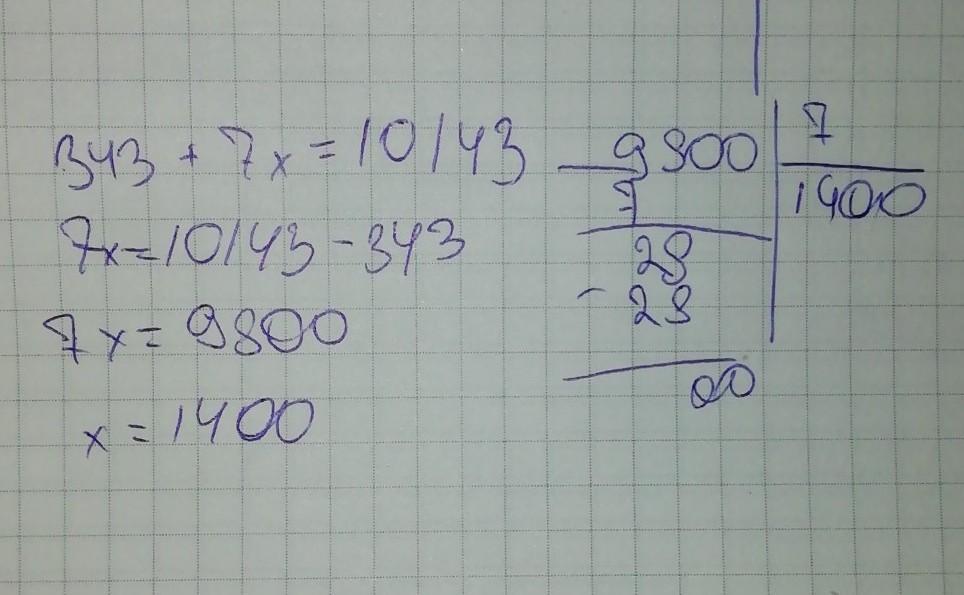 343 + 7x = 10143
7x = 10143 - 343
7x = 9800
x = 1400
9800 | 7
7 | 1400
28
- 28
00